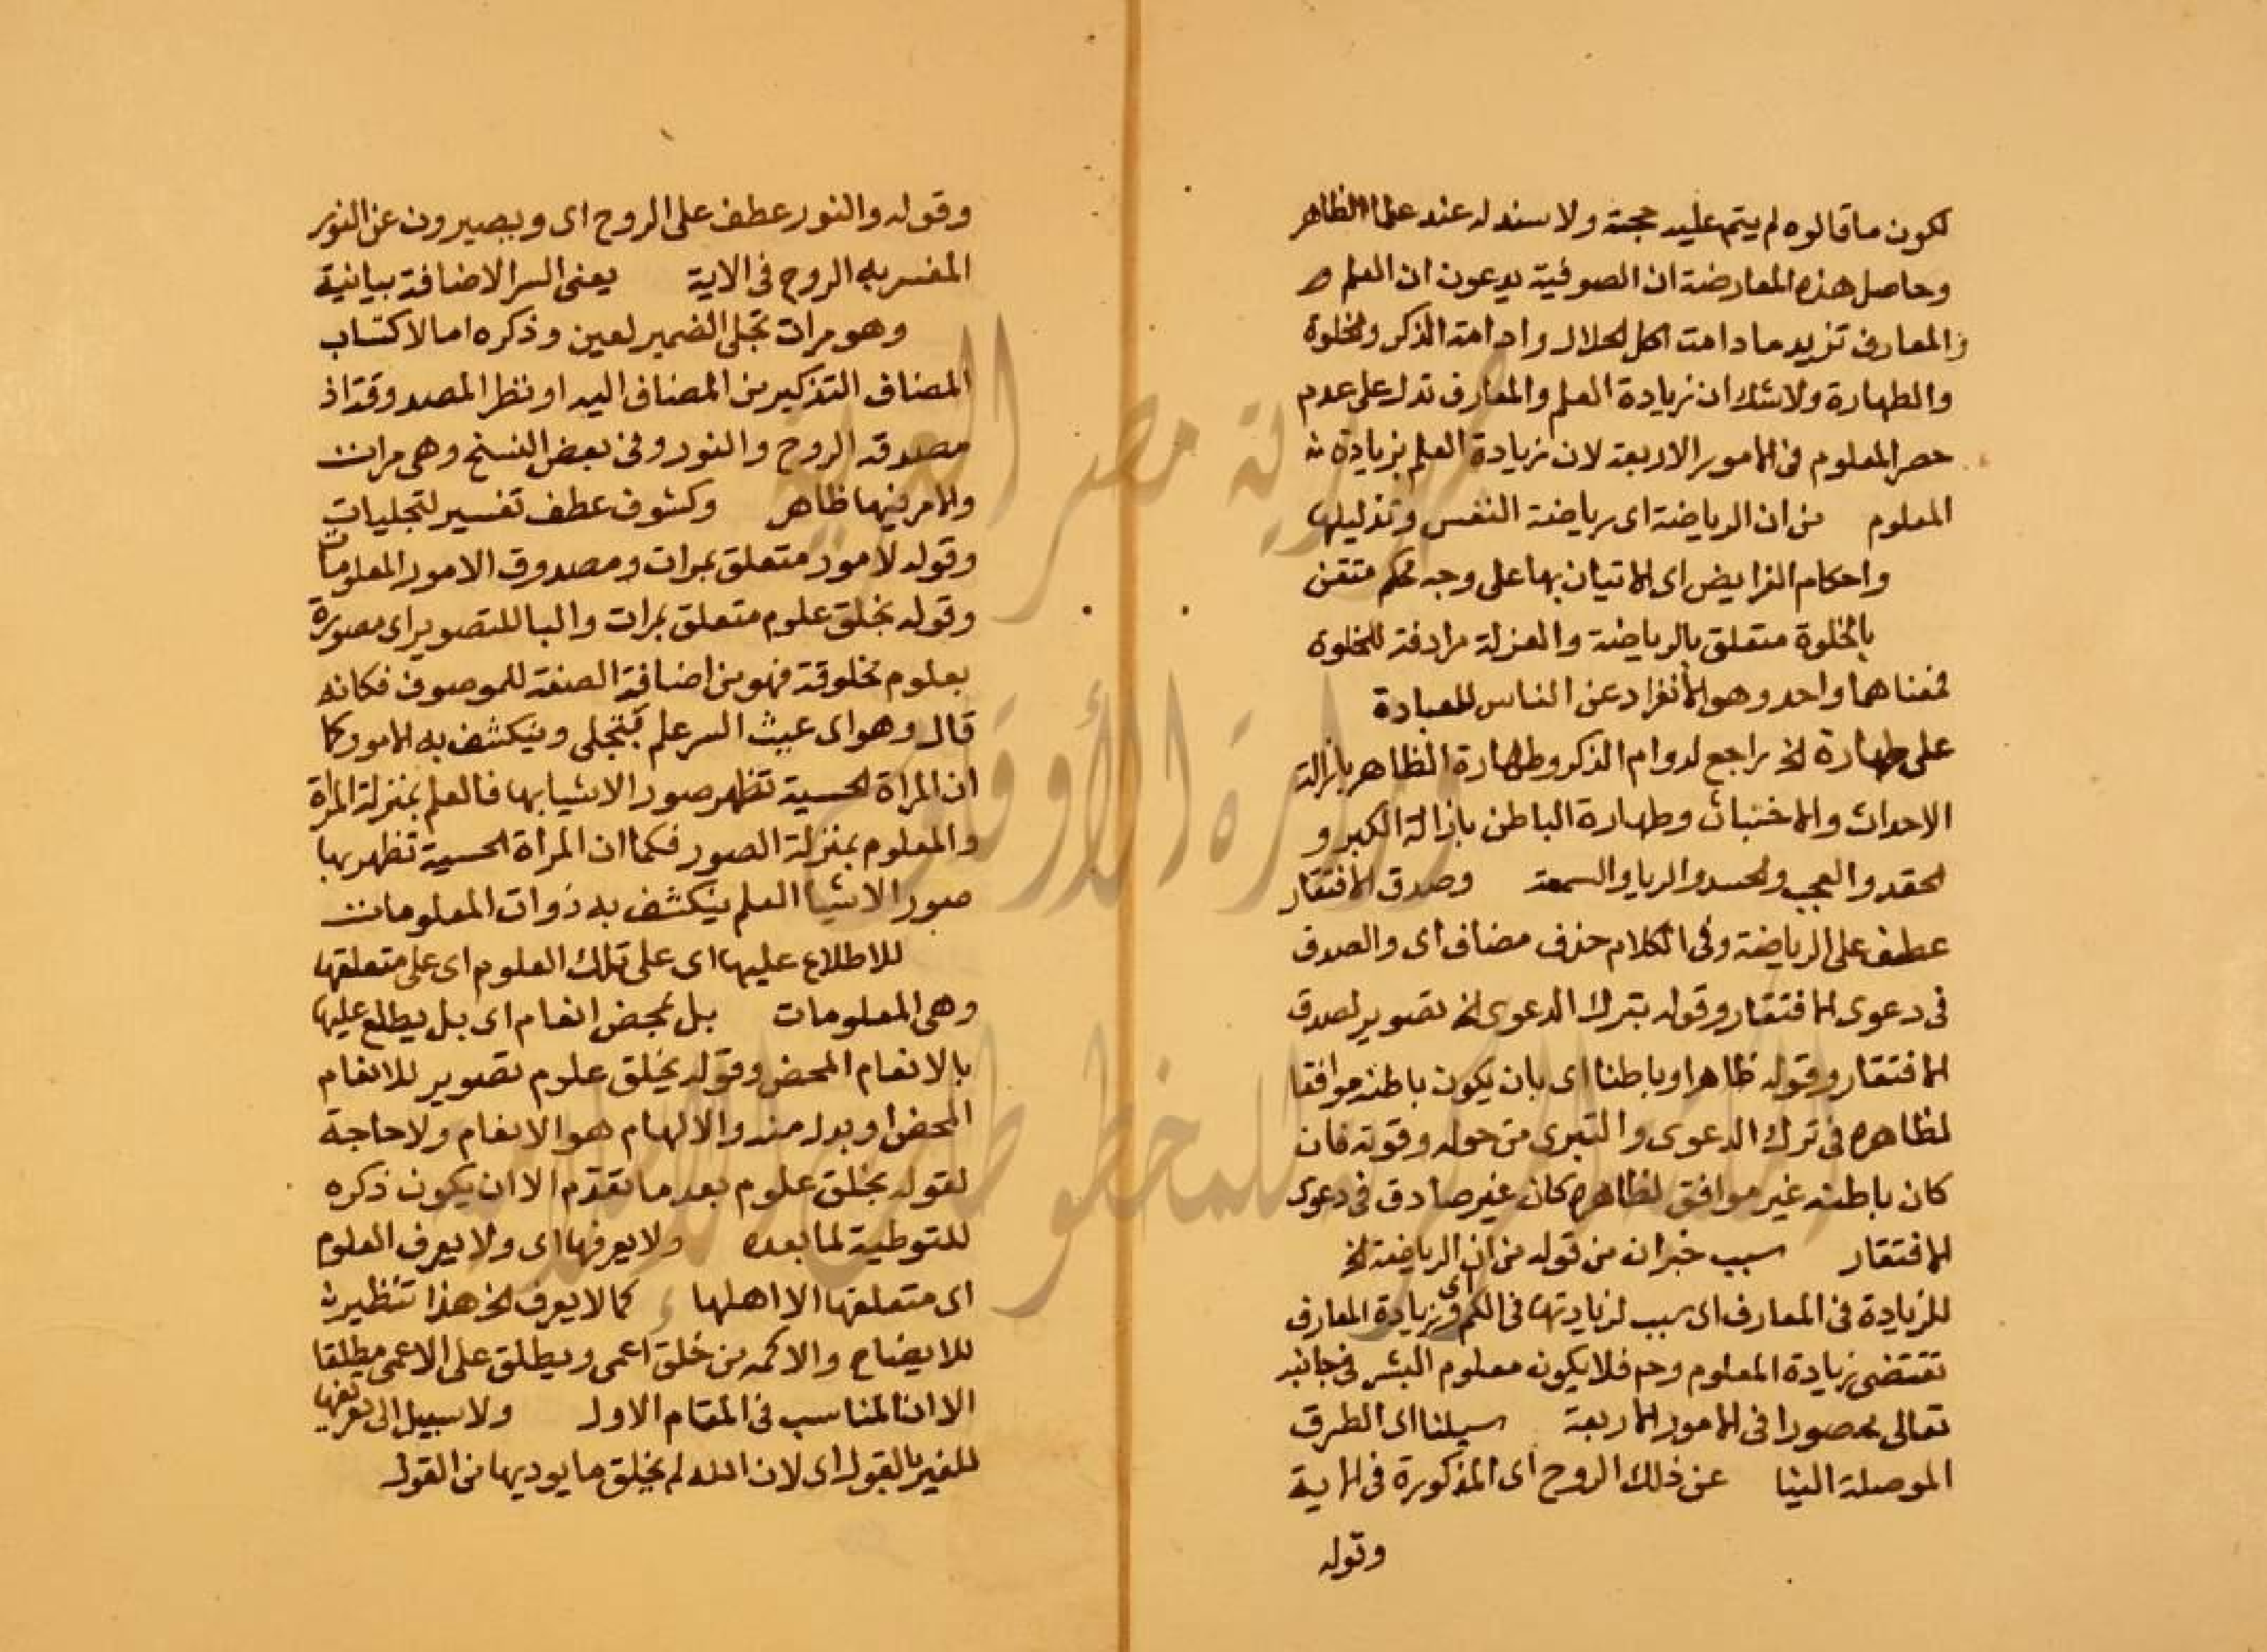 لكون ما قالوه لم يتم عليه حجة ولا سند له عند علماء الظاهر
وحاصل هذه المعارضة ان الصوفية يدعون ان العلم و
والمعارف تزيد ما دامت اكل الحلال وادامة الذكر والخلوة
والطهارة ولا شك ان زيادة العلم والمعارف تدل على عدم
حصر المعلوم في الامور الاربعة لان زيادة العلم بزيادة
المعلوم من ان الرياضة اى رياضة النفس وتذليلها
واحكام الفرايض اى الاتيان بها على وجه محكم متقن
بالخلوة متعلق بالرياضة والعزلة مرادفة للخلوة
فمعناهما واحد وهو الانفراد عن الناس للعبادة
على طهارة الخ راجع لدوام الذكر وطهارة الظاهر بازالة
الاحداث والاخباث وطهارة الباطن بازالة الكبر و
الحقد والعجب والحسد والريا والسمعة وصدق الافتقار
عطف على الرياضة وفي الكلام حذف مضاف اى والصدق
في دعوى الافتقار وقوله بترك الدعوى الخ تصوير لصدق
الافتقار وقوله ظاهرا وباطنا اى بان يكون باطنه موافقا
لظاهره في ترك الدعوى والتبرى من حوله وقوته فان
كان باطنه غير موافق لظاهره كان غير صادق في دعوى
الافتقار سبب خبر ان من قوله من ان الرياضة الخ
للزيادة في المعارف اى سبب لزيادتها في الكم اى وزيادة المعارف
تقتضى زيادة المعلوم وح فلا يكون معلوم البشر في جانبه
تعالى محصورا في الامور الاربعة سبلنا اى الطرق
الموصلة الينا عن ذلك الروح اى المذكورة في الاية
وقوله
وقوله والنور عطف على الروح اى ويصيرون عن النور
المفسر به الروح في الاية يعنى السر الاضافة بيانية
وهو مرات تجلى الضمير لعين وذكره اما لاكتساب
المضاف التذكير من المضاف اليه او نظرا لمصدوقة اذ
مصدوقه الروح والنور وفي بعض النسخ وهى مرات
والامر فيها ظاهر وكشوف عطف تفسير لتجليات
وقوله لامور متعلق بمرات ومصدوق الامور المعلومات
وقوله بخلق علوم متعلق بمرات والبا للتصوير اى مصورة
بعلوم مخلوقة فهو من اضافة الصفة للموصوف فكانه
قال وهو اى عين السر علم يتجلى وينكشف به الامور كما
ان المراة الحسية تظهر صور الاشيا بها فالعلم بمنزلة المراة
والمعلوم بمنزلة الصور فكما ان المراة الحسية تظهر بها
صور الاشيا العلم ينكشف به ذوات المعلومات
للاطلاع عليها اى على تلك العلوم اى على متعلقها
وهى المعلومات بل بمحض انعام اى بل يطلع عليها
بالانعام المحض وقوله بخلق علوم تصوير للانعام
المحض او بدل منه والالهام هو الانعام ولا حاجة
لقوله بخلق علوم بعد ما تقدم الا ان يكون ذكره
للتوطية لما بعده ولا يعرفها اى ولا يعرف العلوم
اى متعلقها الا اهلها كما لا يعرف الخ هذا تنظير
للايضاح والاكمه من خلق اعمى ويطلق على الاعمى مطلقا
الا ان المناسب في المقام الاول ولا سبيل الى تعرفها
للغير بالقول اى لان الله لم يخلق ما يوديها من القول
جمهورية مصر العربية
وزارة الأوقاف